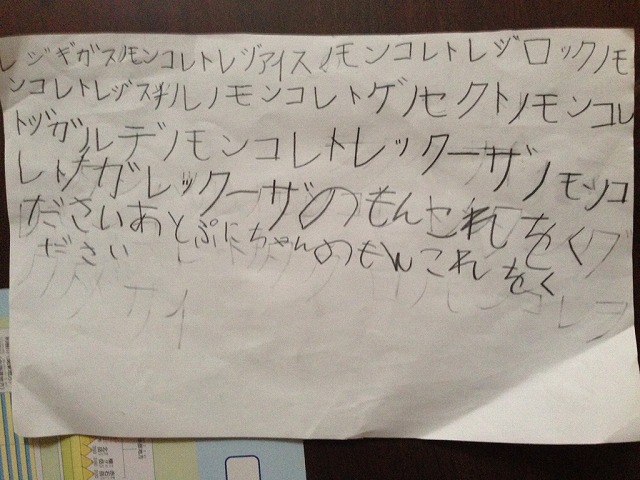 レジギガスノモンコレトレジアイスノモンコレトレジロックノモ
ンコレトレジスギルノモンコレトゲノセクトノモンコレ
トヅガルデノモンコレトレックーザノモンコ
レトメガレックーザのもんこれをく
ださいあとぷにちゃんのもんこれをく
ださい